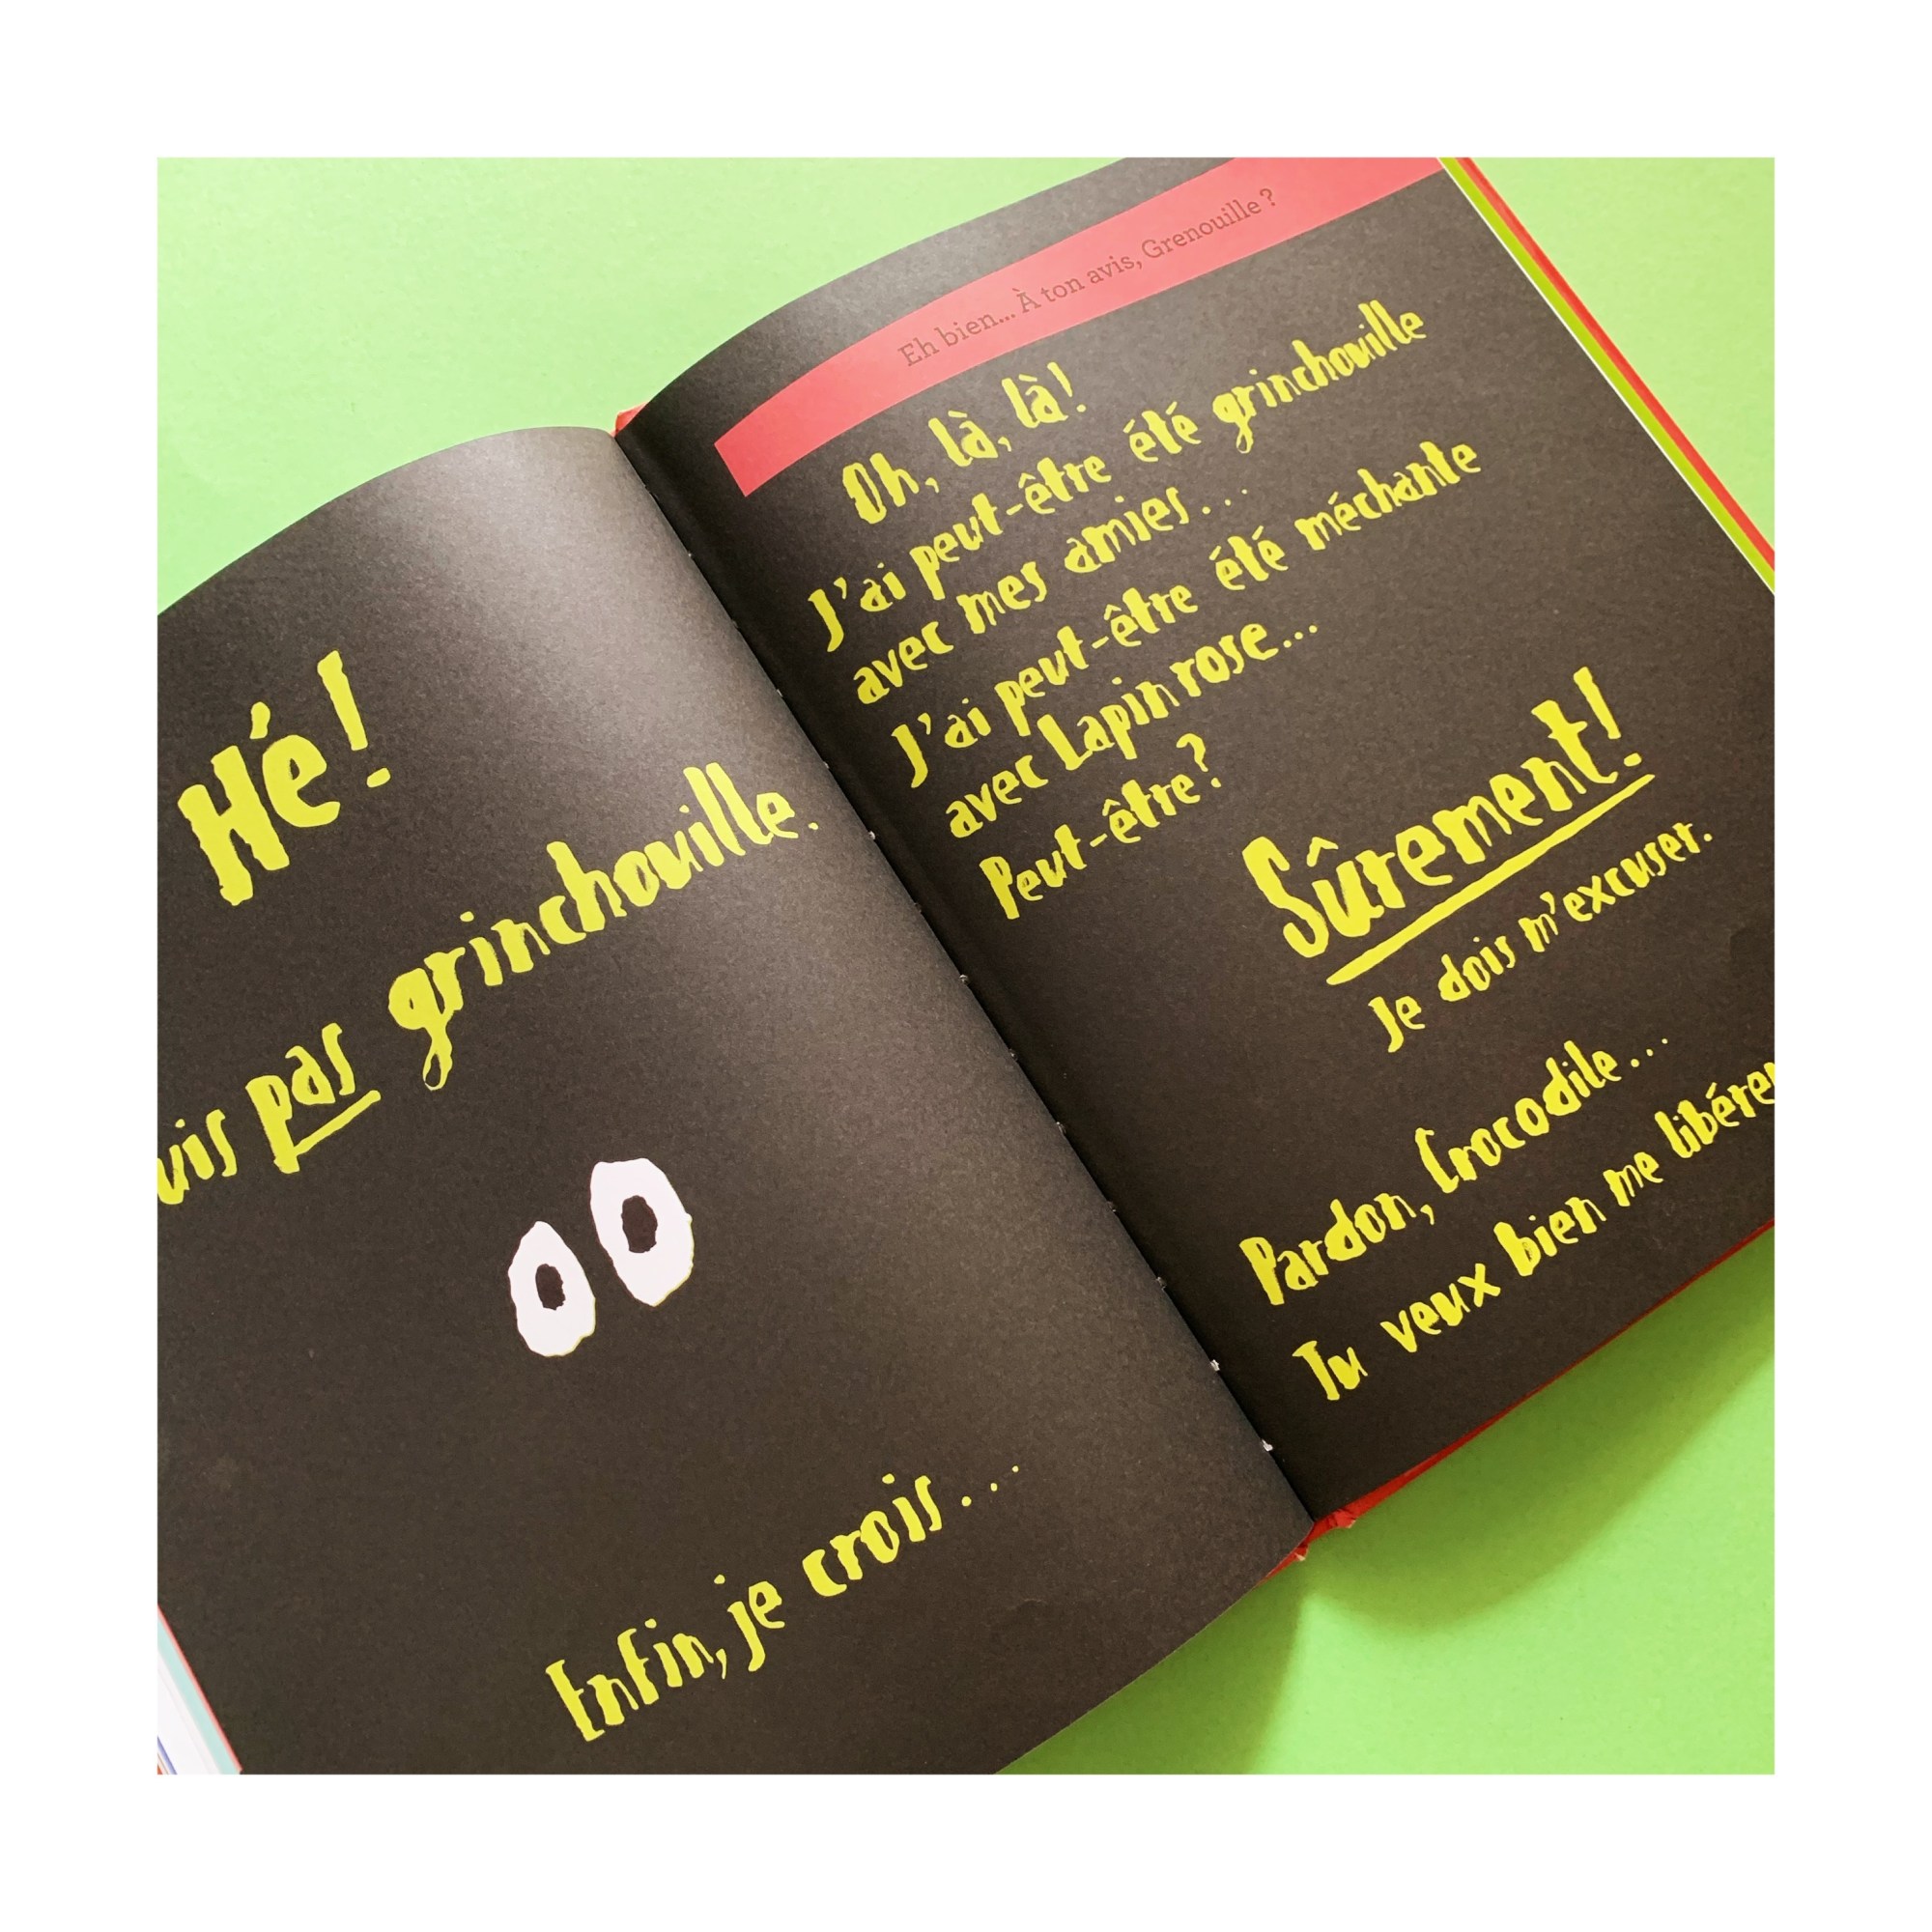 Hé!
uis pas grinchouille.
Enfin, je crois...
Eh bien... À ton avis, Grenouille ?
Oh, là, là!
J'ai peut-être été grinchouille
avec mes amies...
J'ai peut-être été méchante
avec Lapin rose...
Peut-être?
Sûrement!
Je dois m'excuser.
Pardon, Crocodile...
Tu veux bien me libérer